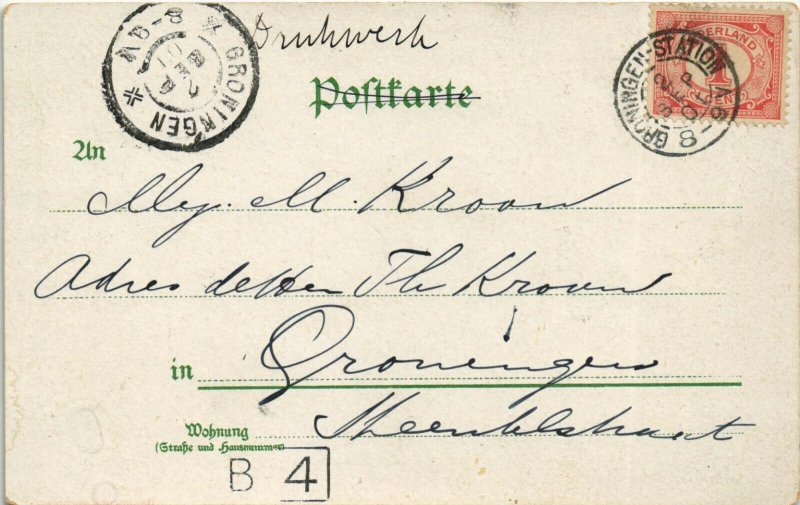 Drukwerk
GRONINGEN
8-9V
GRONINGEN-STATION
NEDERLAND
1
CENT
Postkarte
An
Mej. M. Kroon
Adres den Heer Th Kroon
in Groningen
Wohnung
(Straße und Hausnummer)
B 4